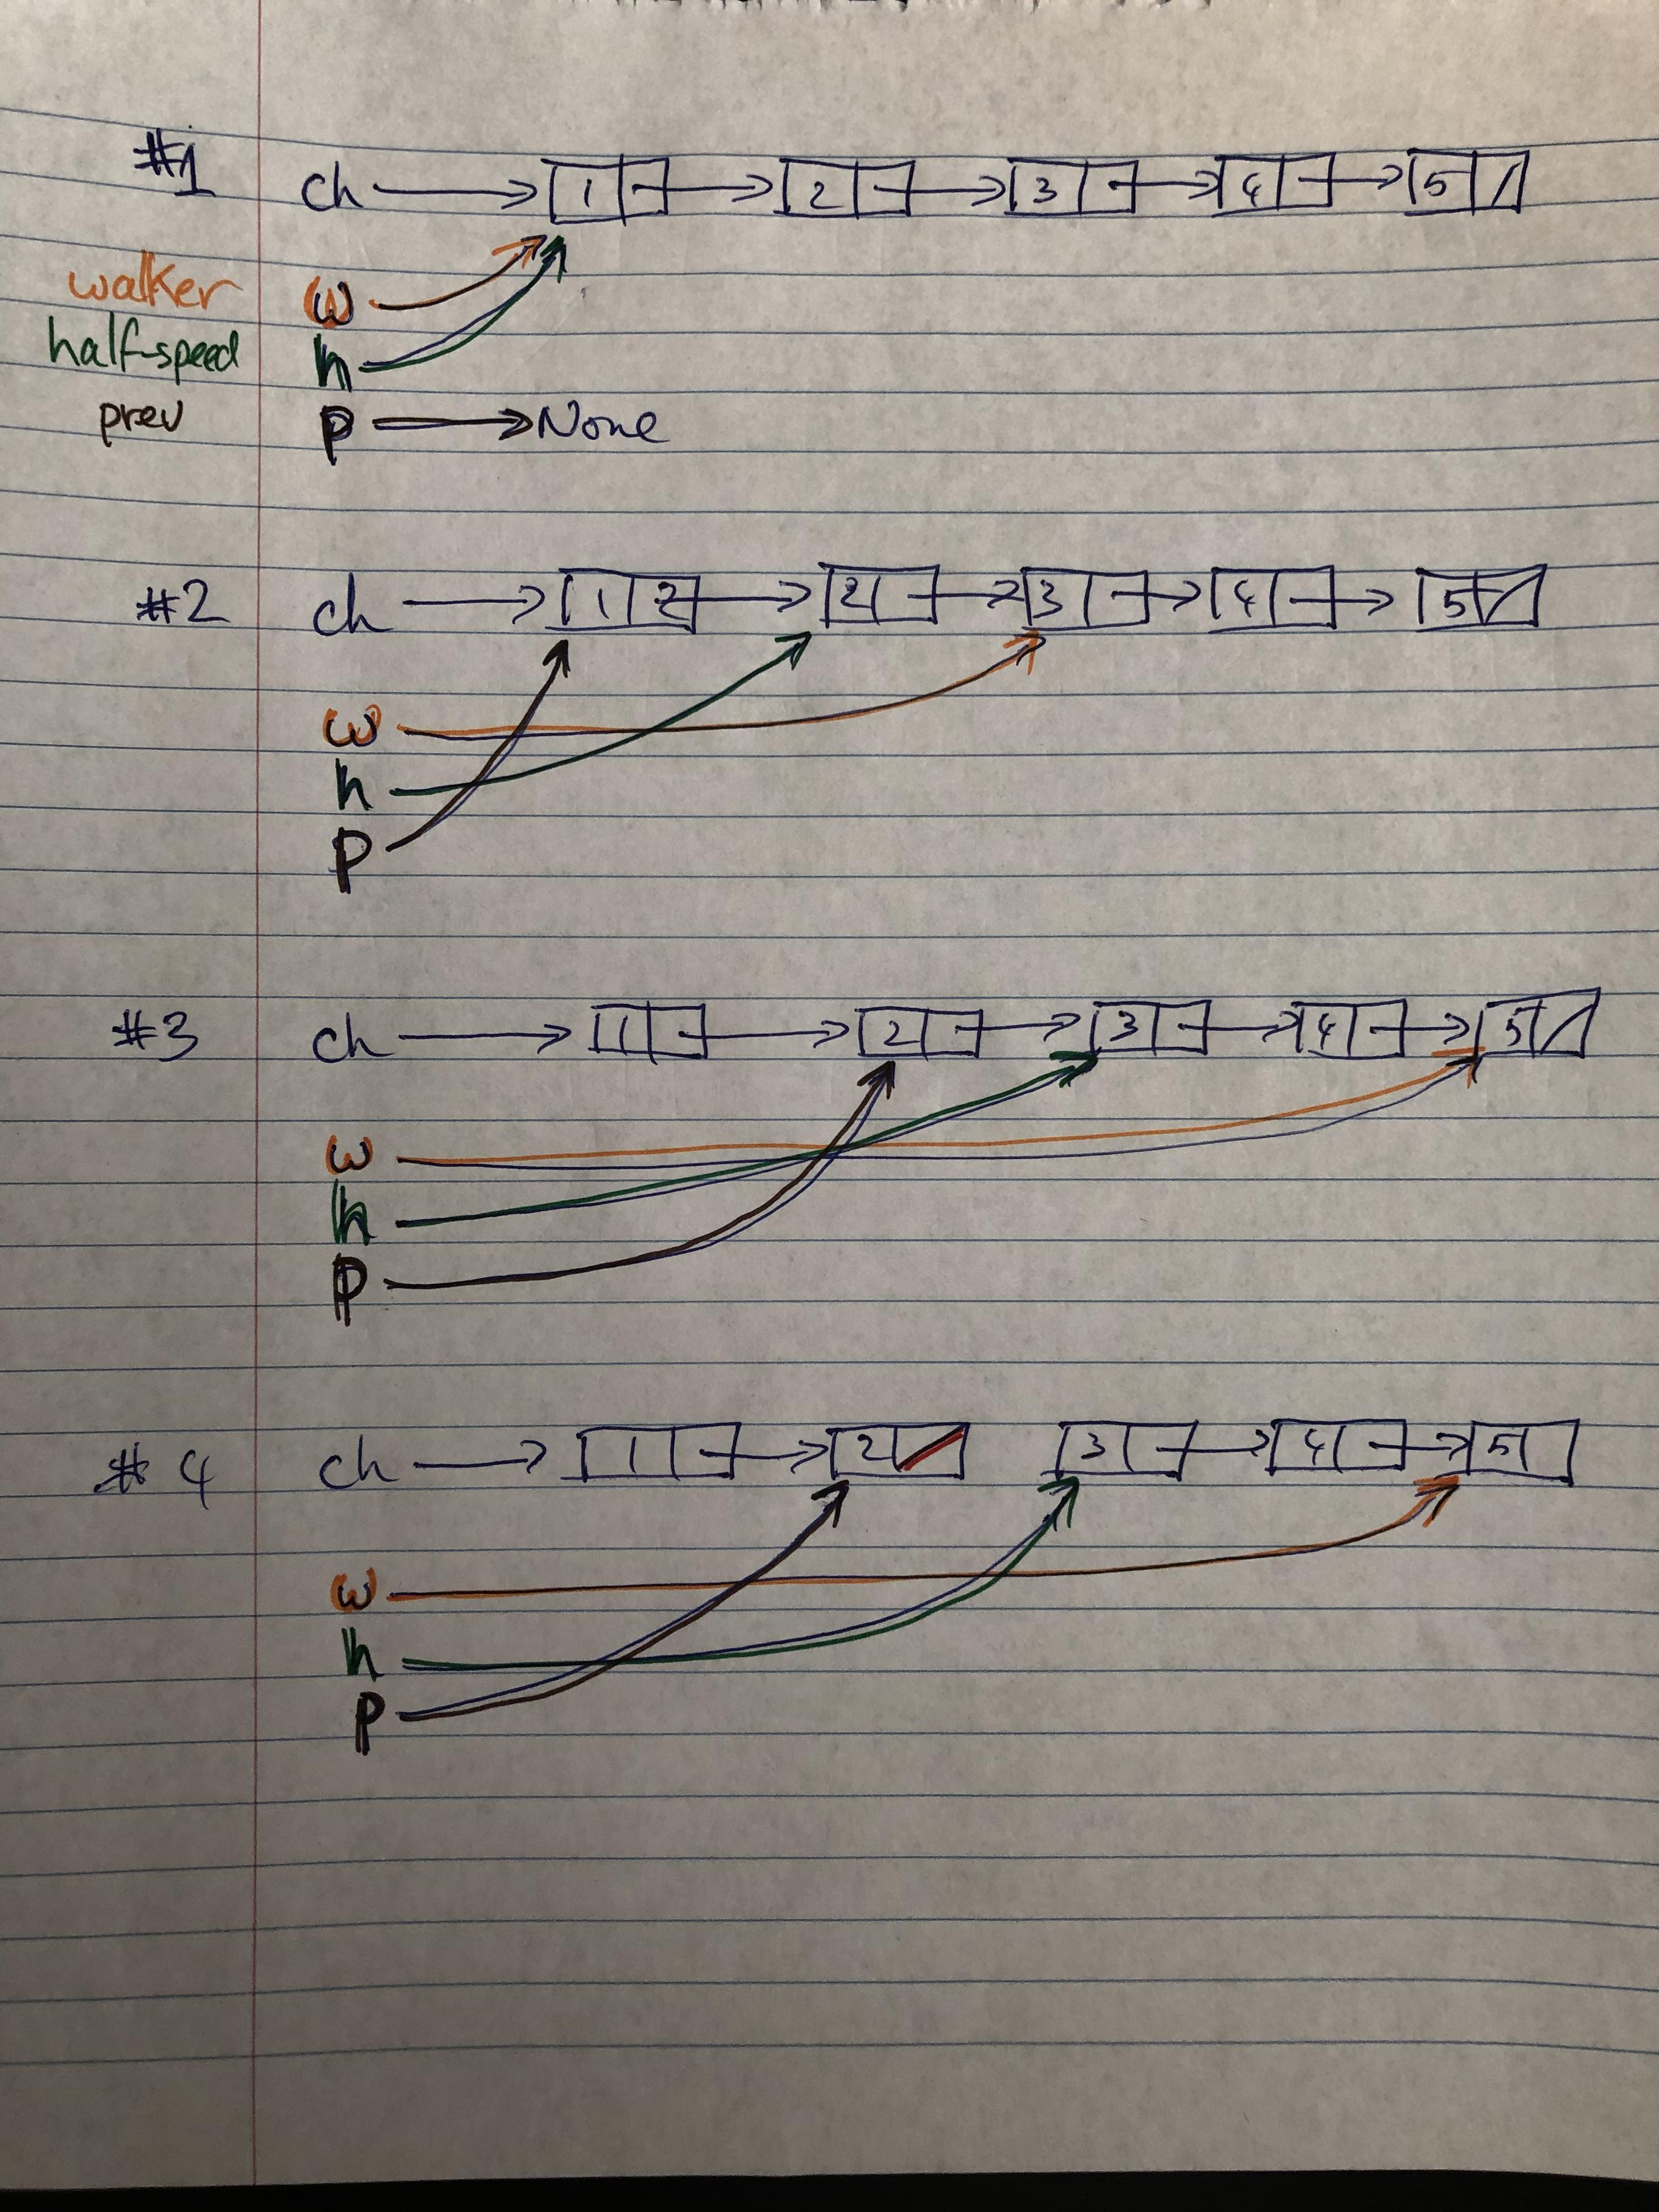 #1 ch 1 2 3 4 5
walker w
half-speed h
prev p None
#2 ch 1 2 3 4 5
w
h
p
#3 ch 1 2 3 4 5
w
h
p
#4 ch 1 2 3 4 5
w
h
p